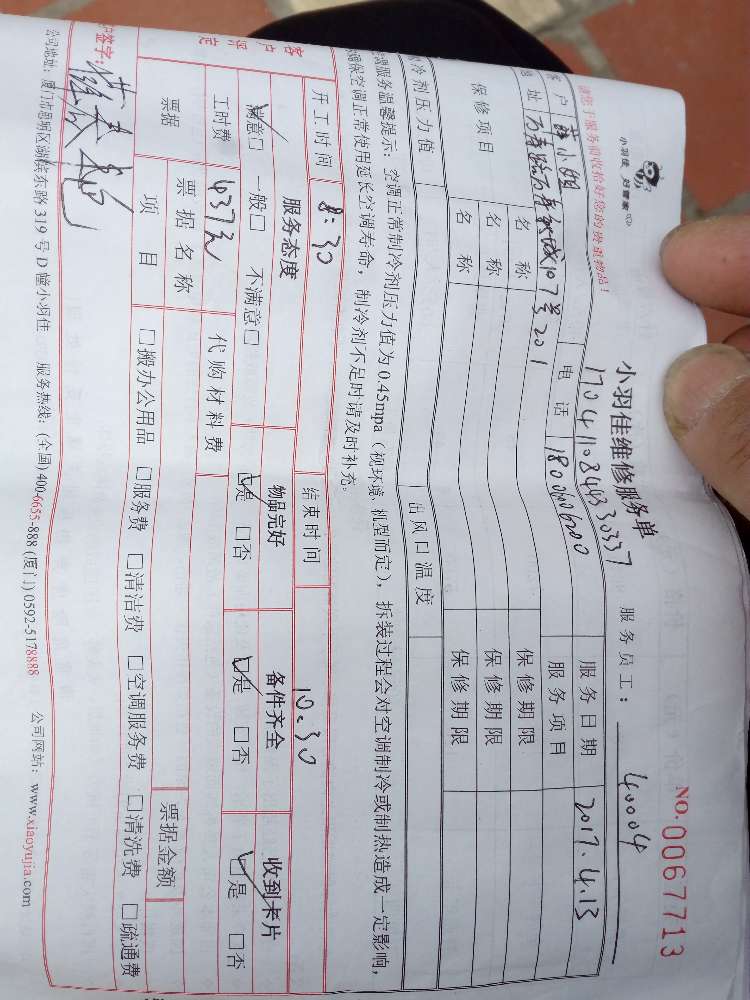 小羽佳 好管家
小羽佳维修服务单
NO. 0067713
请您于服务前收拾好您的贵重物品!
1704110844830337
服务员工: 40004
客户 小姐 电话 18000006200 服务日期 2017.4.13
地址 万寿路万寿 城107号201 服务项目
保修项目
名称 保修期限
名称 保修期限
名称 保修期限
冷剂压力值 出风口温度
服务温馨提示:空调正常制冷剂压力值为0.45mpa(视环境、机型而定),拆装过程会对空调制冷或制热造成一定影响,
保空调正常使用延长空调寿命,制冷剂不足时请及时补充。
开工时间 8:30 结束时间 10:30
客户评定
服务态度 物品完好 备件齐全 收到卡片
满意☑ 一般□ 不满意□ ☑是 □否 ☑是 □否 ☑是 □否
工时费 437元 代购材料费
票据 票据名称 票据金额
项目 □搬办公用品 □服务费 □清洁费 □空调服务费 □清洗费 □疏通费
签字:
公司地址:厦门市思明区湖滨东路319号D幢小羽佳 服务热线:(全国)400-6655-888 (厦门)0592-5178888 公司网站:www.xiaoyujia.com